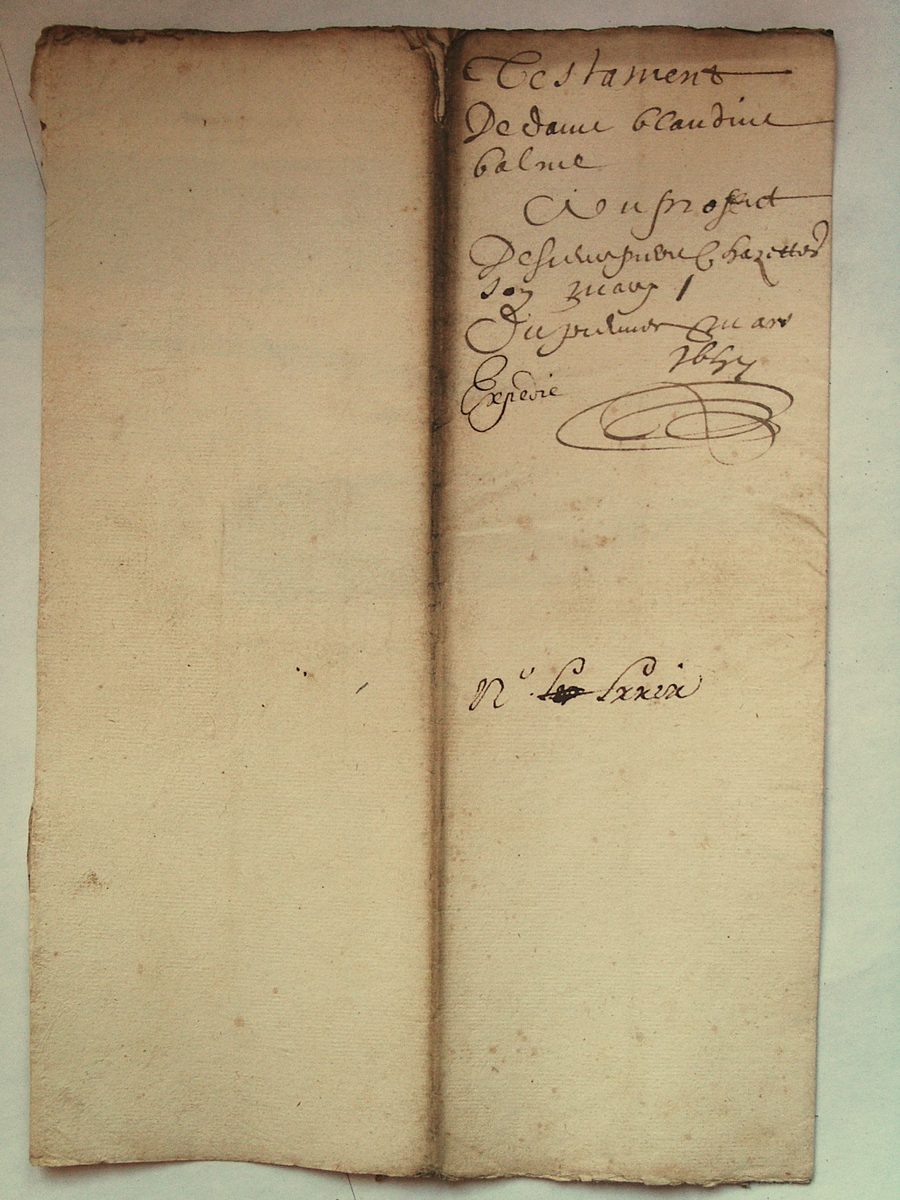 Testament
De dame blandine
balme
Au proffict
De sieur pierre Chazettes
son mary
Du premier mars
1657
Expedié
N.º Lxxix